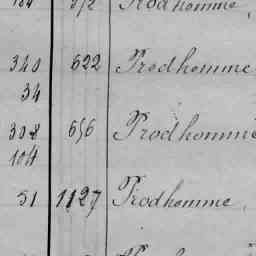 Prodhomme,
340 622 Prodhomme
34
308 656 Prodhomme
104
51 1127 Prodhomme,